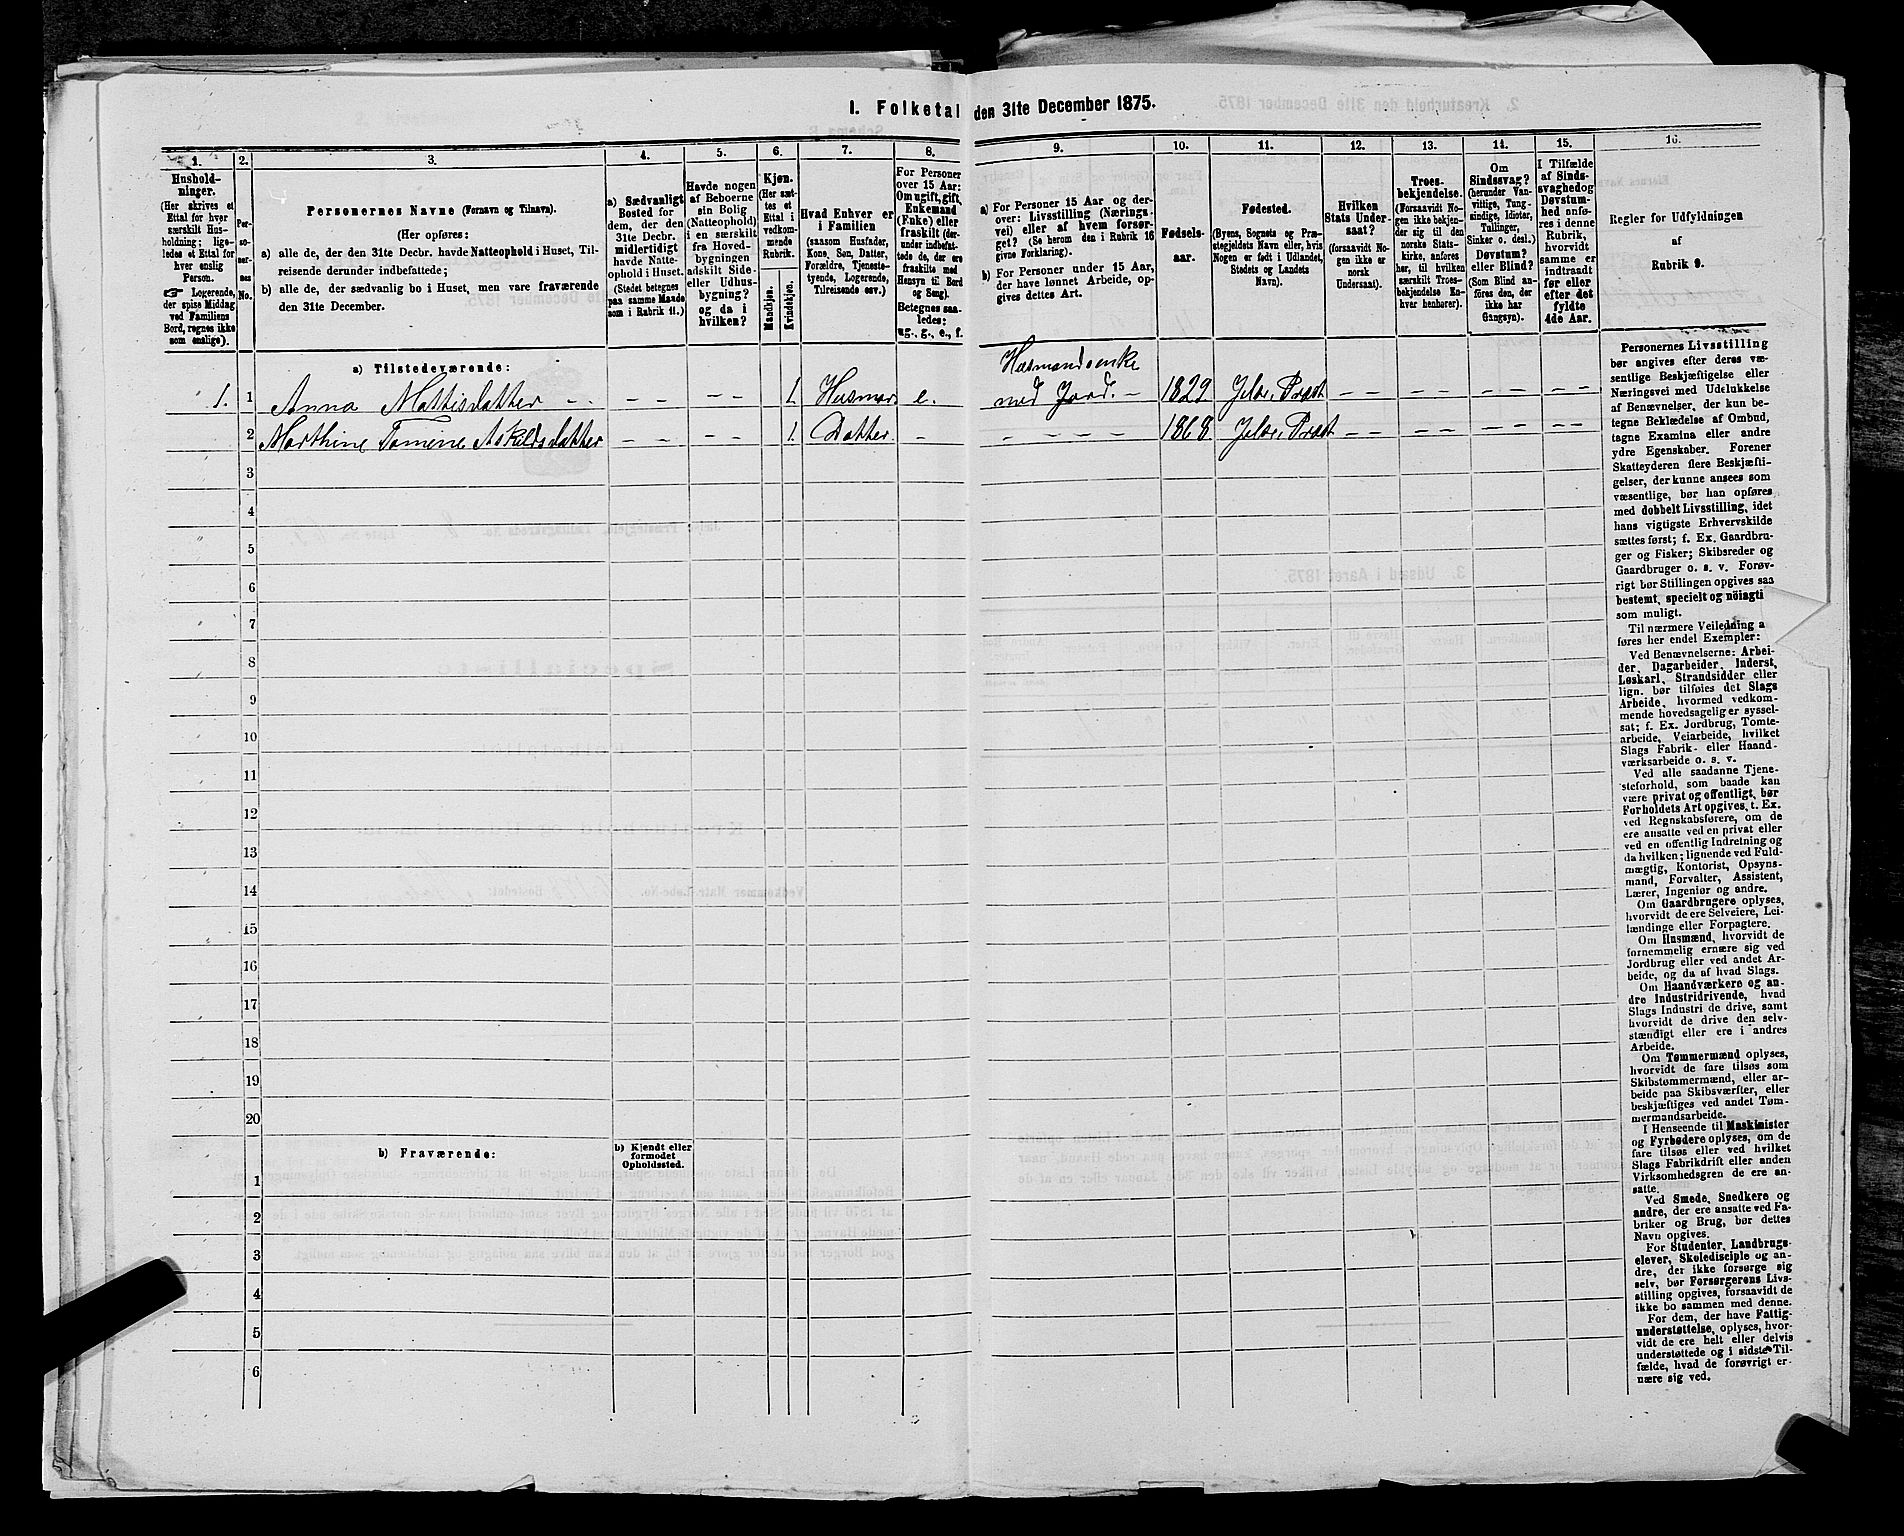 1. Folketal den 31te December 1875.
1. 2. 3. 4. 5. 6. 7. 8. 9. 10. 11. 12. 13. 14. 15. 16.
Hushold-
ninger.
(Her skrives et
Ettal for hver
særskilt Hus-
holdning; lige-
ledes et Ettal for
hver enslig
Person.
☞ Logerende,
der spise Middag
ved Familiens
Bord, regnes ikke
som enslige).
Per-
so-
ner-
nes
No.
Personernes Navne (Fornavn og Tilnavn).
(Her opføres:
a) alle de, der den 31te Decbr. havde Natteophold i Huset, Til-
reisende derunder indbefattede;
b) alle de, der sædvanlig bo i Huset, men vare fraværende
den 31te December.
a) Sædvanligt
Bosted for
dem, der den
31te Decbr.
midlertidigt
havde Natte-
ophold i Huset.
(Stedet betegnes
paa samme Maade
som i Rubrik 11.)
Havde nogen
af Beboerne
sin Bolig
(Natteophold)
i en særskilt
fra Hoved-
bygningen
adskilt Side-
eller Udhus-
bygning?
og da i
hvilken?
Kjøn.
(Her sæt-
tes et
Ettal i
vedkom-
mende
Rubrik.
Mandkjøn.
Kvindekjøn.
Hvad Enhver er
i Familien
(saasom Husfader,
Kone, Søn, Datter,
Forældre, Tjeneste-
tyende, Logerende,
Tilreisende osv.)
For Personer
over 15 Aar:
Om ugift, gift,
Enkemand
(Enke) eller
fraskilt (der-
under indbefat-
tede de, der ere
fraskilte med
Hensyn til Bord
og Seng).
Betegnes saa-
ledes:
ug., g., e., f.
a) For Personer 15 Aar og der-
over: Livsstilling (Nærings-
vei) eller af hvem forsør-
get? (Se herom den i Rubrik 16
givne Forklaring).
b) For Personer under 15 Aar,
der have lønnet Arbeide, op-
gives dettes Art.
Fødsels-
aar.
Fødested.
(Byens, Sognets og Præ-
stegjeldets Navn eller, hvis
Nogen er født i Udlandet,
Stedets og Landets
Navn).
Hvilken
Stats Under-
saat?
(forsaavidt No-
gen ikke er
norsk
Undersaat).
Troes-
bekjendelse.
(Forsaavidt No-
gen ikke bekjen-
der sig til den
norske Stats-
kirke, anføres
her, til hvilken
særskilt Troes-
bekjendelse En-
hver henhører).
Om
Sindssvag?
(herunder Van-
vittige, Tung-
sindige, Idioter,
Tullinger,
Sinker o. desl.)
Døvstum?
eller Blind?
(Som Blind an-
føres den, der
ikke har
Gangsyn).
I Tilfælde
af Sinds-
svaghed og
Døvstum-
hed anfø-
res i denne
Rubrik,
hvorvidt
samme er
indtraadt
før eller
efter det
fyldte
4de Aar.
Regler for Udfyldningen
af
Rubrik 9.
a) Tilstedeværende:
Husmandsenke
1. 1 Anna Mattisdatter - - - - - - 1. Husmor e. med Jord. - 1829 Jelø. Præst
2 Marthine Tomene Askildsdatter - - - - - 1. Datter - - - - - - 1868 Jelø. Præst
3
4
5
6
7
8
9
10
11
12
13
14
15
16
17
18
19
20
b) Fraværende:
b) Kjendt eller
formodet
Opholdssted.
1
2
3
4
5
6
Personernes Livsstilling
bør angives efter deres væ-
sentlige Beskjæftigelse eller
Næringsvei med Udelukkelse
af Benævnelser, der kun be-
tegne Beklædelse af Ombud,
tagne Examina eller andre
ydre Egenskaber. Forener
Skatteyderen flere Beskjæfti-
gelser, der kunne ansees som
væsentlige, bør han opføres
med dobbelt Livsstilling, idet
hans vigtigste Erhvervskilde
sættes først; f. Ex. Gaardbru-
ger og Fisker; Skibsreder og
Gaardbruger o. s. v. Forøv-
rigt bør Stillingen opgives saa
bestemt, specielt og nøiagti
som muligt.
Til nærmere Veiledning a
føres her endel Exempler:
Ved Benævnelserne: Arbei-
der, Dagarbeider, Inderst,
Løskarl, Strandsidder eller
lign. bør tilføies det Slags
Arbeide, hvormed vedkom-
mende hovedsagelig er syssel-
sat; f. Ex. Jordbrug, Tomte-
arbeide, Veiarbeide, hvilket
Slags Fabrik- eller Haand-
værksarbeide o. s. v.
Ved alle saadanne Tjene-
steforhold, som baade kan
være privat og offentligt, bør
Forholdets Art opgives, t. Ex.
ved Regnskabsførere, om de
ere ansatte ved en privat eller
ved en offentlig Indretning og
da hvilken; lignende ved Fuld-
mægtig, Kontorist, Opsyns-
mand, Forvalter, Assistent,
Lærer, Ingeniør og andre.
Om Gaardbrugere oplyses,
hvorvidt de ere Selveiere, Lei-
lændinge eller Forpagtere.
Om Husmænd, hvorvidt de
fornemmelig ernære sig ved
Jordbrug eller ved andet Ar-
beide, og da af hvad Slags.
Om Haandværkere og an-
dre Industridrivende, hvad
Slags Industri de drive, samt
hvorvidt de drive den selv-
stændigt eller ere i andres
Arbeide.
Om Tømmermænd oplyses,
hvorvidt de fare tilsøs som
Skibstømmermænd, eller ar-
beide paa Skibsværfter, eller
beskjæftiges ved andet Tøm-
mermandsarbeide.
I Henseende til Maskinister
og Fyrbødere oplyses, om de
fare tilsøs eller ved hvilket
Slags Fabrikdrift eller anden
Virksomhedsgren de ere an-
satte.
Ved Smede, Snedkere og
andre, der ere ansatte ved Fa-
briker og Brug, bør dettes
Navn opgives.
For Studenter, Landbrugs-
elever, Skoledisciple og an-
dre, der ikke forsørge sig
selv, bør Forsørgerens Livs-
stilling opgives, forsaavidt de
ikke bo sammen med denne.
For dem, der have Fattig-
understøttelse, oplyses, hvor-
vidt de ere helt eller delvis
understøttede og i sidste Til-
fælde, hvad de forøvrigt er-
nære sig ved.